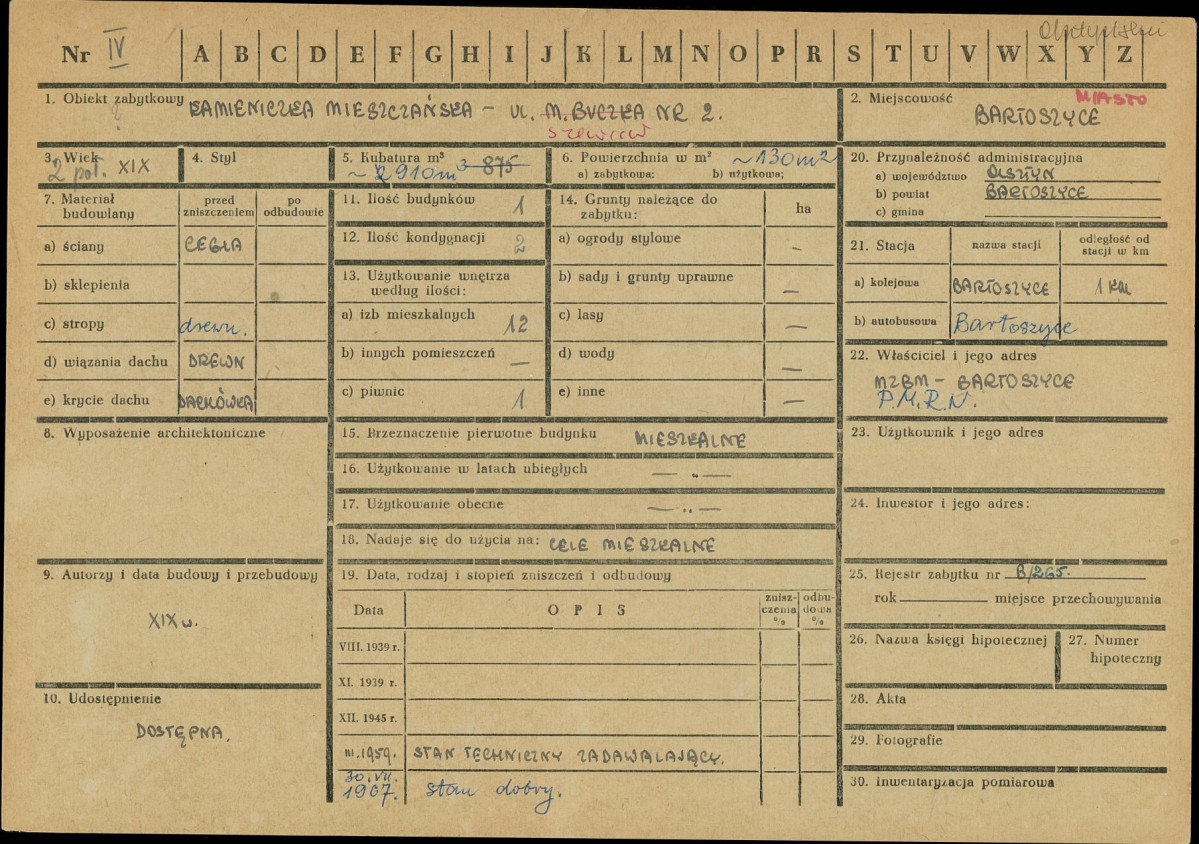 Nr IV A B C D E F G H I J K L M N O P R S T U V W X Y Z
1. Obiekt zabytkowy KAMIENICZKA MIESZCZAŃSKA – UL. M. BUCZKA NR 2.
Szewców
2. Miejscowość MIASTO
BARTOSZYCE
3. Wiek
2 poł. XIX
4. Styl
5. Kubatura m³
~ 2 910 m³ 875
6. Powierzchnia w m² ~130 m²
a) zabytkowa: b) użytkowa:
7. Materiał budowlany
przed zniszczeniem
po odbudowie
a) ściany CEGŁA
b) sklepienia
c) stropy drewn.
d) wiązania dachu DREWN
e) krycie dachu DACHÓWKA
8. Wyposażenie architektoniczne
9. Autorzy i data budowy i przebudowy
XIX w.
10. Udostępnienie
DOSTĘPNA.
11. Ilość budynków 1
12. Ilość kondygnacji 2
13. Użytkowanie wnętrza
według ilości:
a) izb mieszkalnych 12
b) innych pomieszczeń —
c) piwnic 1
14. Grunty należące do
zabytku: ha
a) ogrody stylowe –
b) sady i grunty uprawne —
c) lasy —
d) wody —
e) inne —
15. Przeznaczenie pierwotne budynku MIESZKALNE
16. Użytkowanie w latach ubiegłych — „ —
17. Użytkowanie obecne — „ —
18. Nadaje się do użycia na: CELE MIESZKALNE
19. Data, rodzaj i stopień zniszczeń i odbudowy
Data OPIS znisz-czenia % odbu-dowa %
VIII. 1939 r.
XI. 1939 r.
XII. 1945 r.
III.1959. STAN TECHNICZNY ZADAWALAJĄCY.
30.VII.
1967. stan dobry.
20. Przynależność administracyjna
a) województwo OLSZTYN
b) powiat BARTOSZYCE
c) gmina
21. Stacja nazwa stacji odległość od stacji w km
a) kolejowa BARTOSZYCE 1 KM
b) autobusowa Bartoszyce
22. Właściciel i jego adres
MZBM – BARTOSZYCE
P.M.R.N.
23. Użytkownik i jego adres
24. Inwestor i jego adres:
25. Rejestr zabytku nr B/265.
rok miejsce przechowywania
26. Nazwa księgi hipotecznej
27. Numer
hipoteczny
28. Akta
29. Fotografie
30. Inwentaryzacja pomiarowa